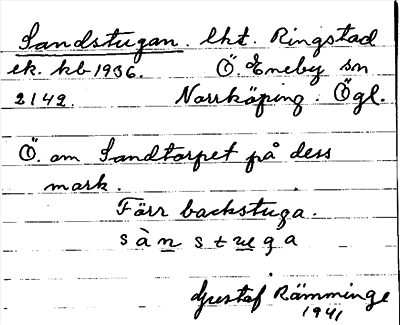 Sandstugan. lht. Ringstad
ek. kb 1936. Ö. Eneby sn
2142. Norrköping: Ögl.
Ö. om Sandtorpet på dess
mark.
Förr backstuga.
sànstuga
Gustaf Rämminge
1941